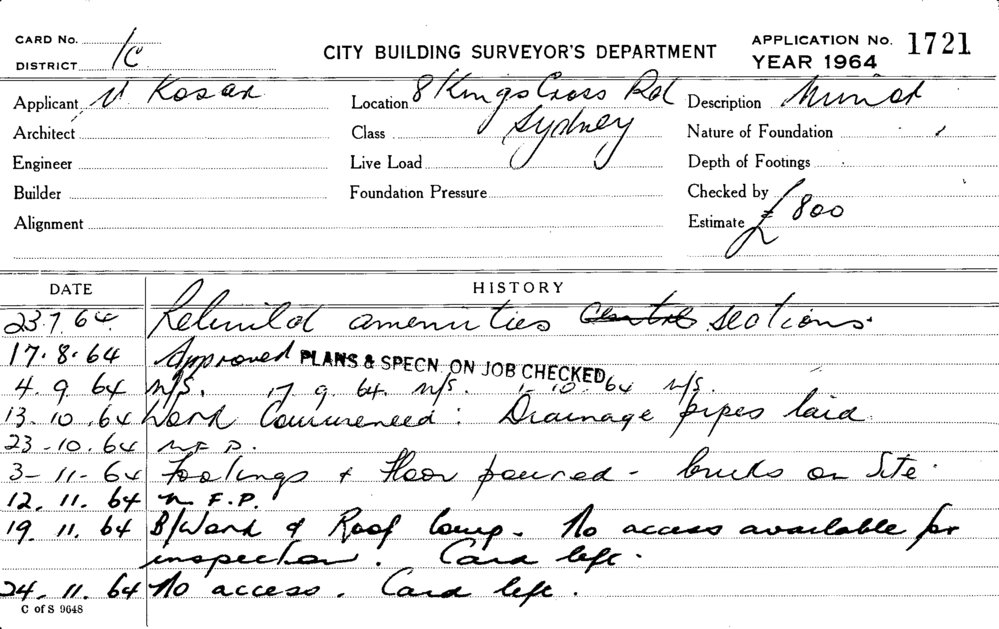 CARD No.
DISTRICT 1C
CITY BUILDING SURVEYOR'S DEPARTMENT
APPLICATION No. 1721
YEAR 1964
Applicant V Kosar Location 8 Kings Cross Rd Description Minor
Architect Class Sydney Nature of Foundation
Engineer Live Load Depth of Footings
Builder Foundation Pressure Checked by
Alignment Estimate £800
DATE HISTORY
23.7.64. Rebuild amenities sections.
17.8.64 Approved PLANS & SPECN. ON JOB CHECKED
4.9.64 N/S. 17.9.64. N/S. 1-10.64 N/S.
13.10.64 Work Commenced: Drainage pipes laid
23-10.64 N F P.
3-11-64 Footings + Floor poured - bricks on Site.
12.11.64 N F.P.
19.11.64 B/Work & Roof Comp. No access available for
inspection. Card left.
24.11.64 No access. Card left.
C of S 9648